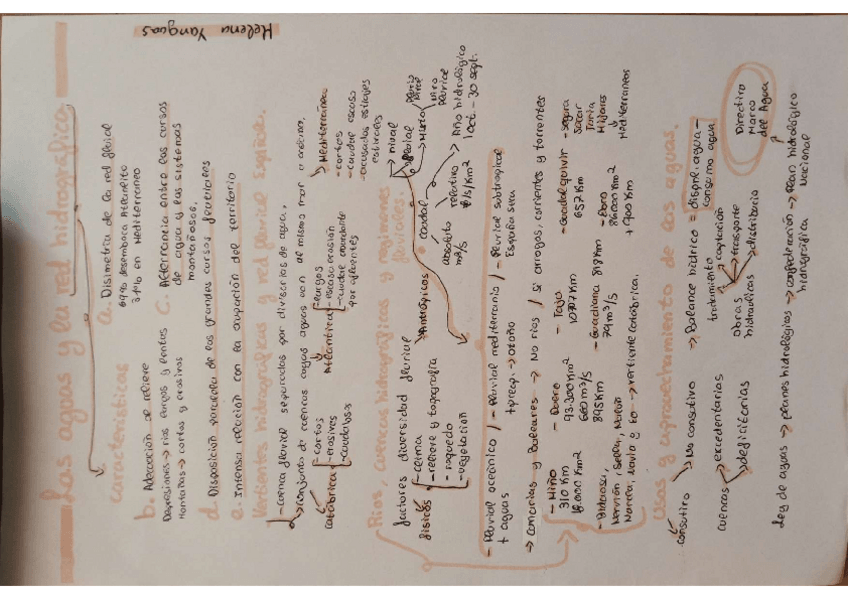 Helena Yanguas
Las aguas y la red hidrográfica.
características
a. Disimetría de la red fluvial
69% desemboca Atlántico
31% en Mediterraneo
b. Adecuación al relieve
Depresiones → ríos largos y lentos
Montañas → cortos y erosivos
c. Alternancia entre los cursos
de agua y los sistemas
montañosos.
d. Disposición paralela de los grandes cursos fluviales
e. Intensa relación con la ocupación del territorio
Vertientes hidrográficas y red fluvial Española.
- cuenca fluvial separadas por divisorias de agua.
→ conjunto de cuencas cuyas aguas van al mismo mar o océano.
cantábrica
- cortos
- erosivos
- caudalosos
Atlántica
- largos
- escasa erosión
- caudal abundante
por afluentes
Mediterránea
- cortos
- caudal escaso
- acusados estiajes
estivales
Ríos, cuencas hidrográficas y regímenes
fluviales.
factores diversidad fluvial
físicos
- clima
- relieve y topografía
- roquedo
- vegetación
Antrópicos
caudal
absoluto
m³/s
relativo
Año hidrológico
1 Oct. - 30 sept.
nival
pluvial
mixto
- Pluvial oceánico / - Pluvial mediterráneo / - Pluvial subtropical
+ aguas
+ precip. → otoño
España sur
→ canarias y Baleares → No ríos / sí arroyos, corrientes y torrentes
- Miño
310 Km
- Duero
93.300 Km²
660 m³/s
895 Km
- Tajo
- Guadiana 818 Km
79 m³/s
- Guadalquivir
657 Km
- Ebro
86000 Km²
+ 900 Km
- Segura
Júcar
Turia
Mijares
Mediterraneos
- Bidasoa,
Nervión, Sella, Nalón
Narcea, Navia y Eo → vertiente cantábrica.
Usos y aprovechamiento de las aguas.
consuntivo
→ No consuntivo
→ Balance hídrico = disponi. agua -
consumo agua
cuencas
excedentarias
deficitarias
Obras
hidraulicas
tratamiento
captación
transporte
distribución
Directiva
Marco
del Agua
Ley de aguas → planes hidrológicos → confederación
hidrográfica
→ Plan hidrológico
Nacional